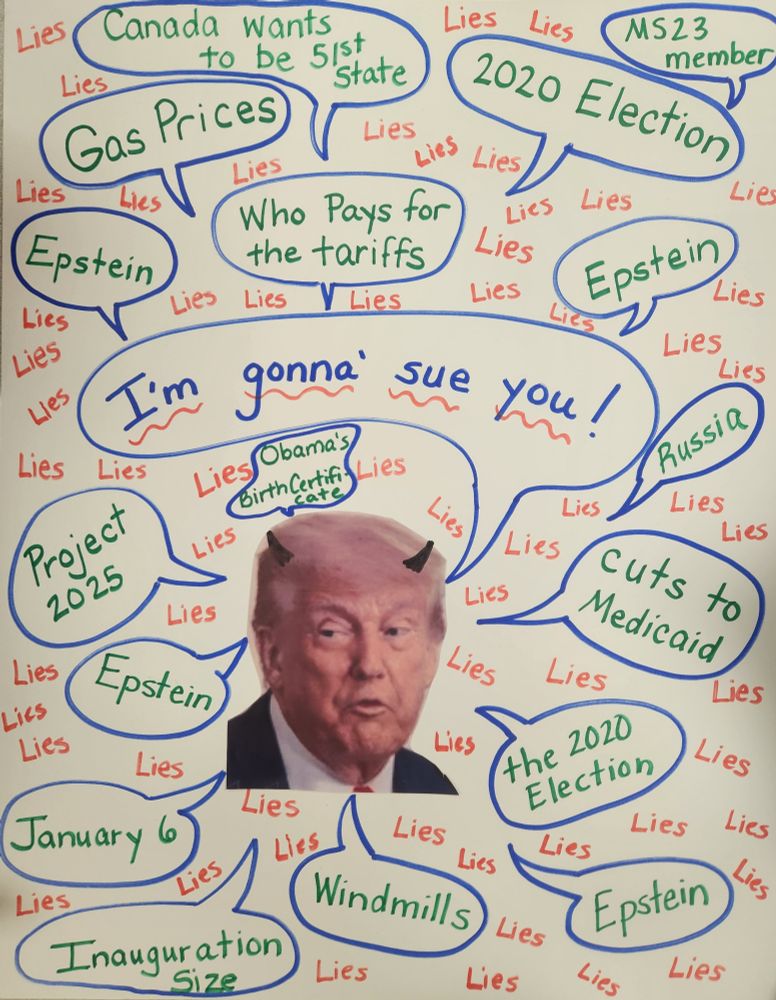 Canada wants
to be 51st
State
Lies
Lies
Lies
MS23
member
Lies
Gas Prices
2020 Election
Lies
Lies
Lies
Lies
Lies
Lies
Lies
Lies
Lies
Who Pays for
the tariffs
Lies
Epstein
Epstein
Lies
Lies
Lies
Lies
Lies
Lies
Lies
Lies
Lies
Lies
Lies
I'm gonna' sue you!
Lies
Russia
Obama's
Birth Certifi-
cate
Lies
Lies
Lies
Lies
Lies
Lies
Lies
Lies
Lies
Lies
Project
2025
Lies
Lies
Lies
cuts to
Medicaid
Epstein
Lies
Lies
Lies
Lies
Lies
Lies
Lies
Lies
Lies
the 2020
Election
Lies
January 6
Lies
Lies
Lies
Lies
Lies
Lies
Lies
Lies
Lies
Lies
Windmills
Epstein
Lies
Inauguration
Size
Lies
Lies
Lies
Lies